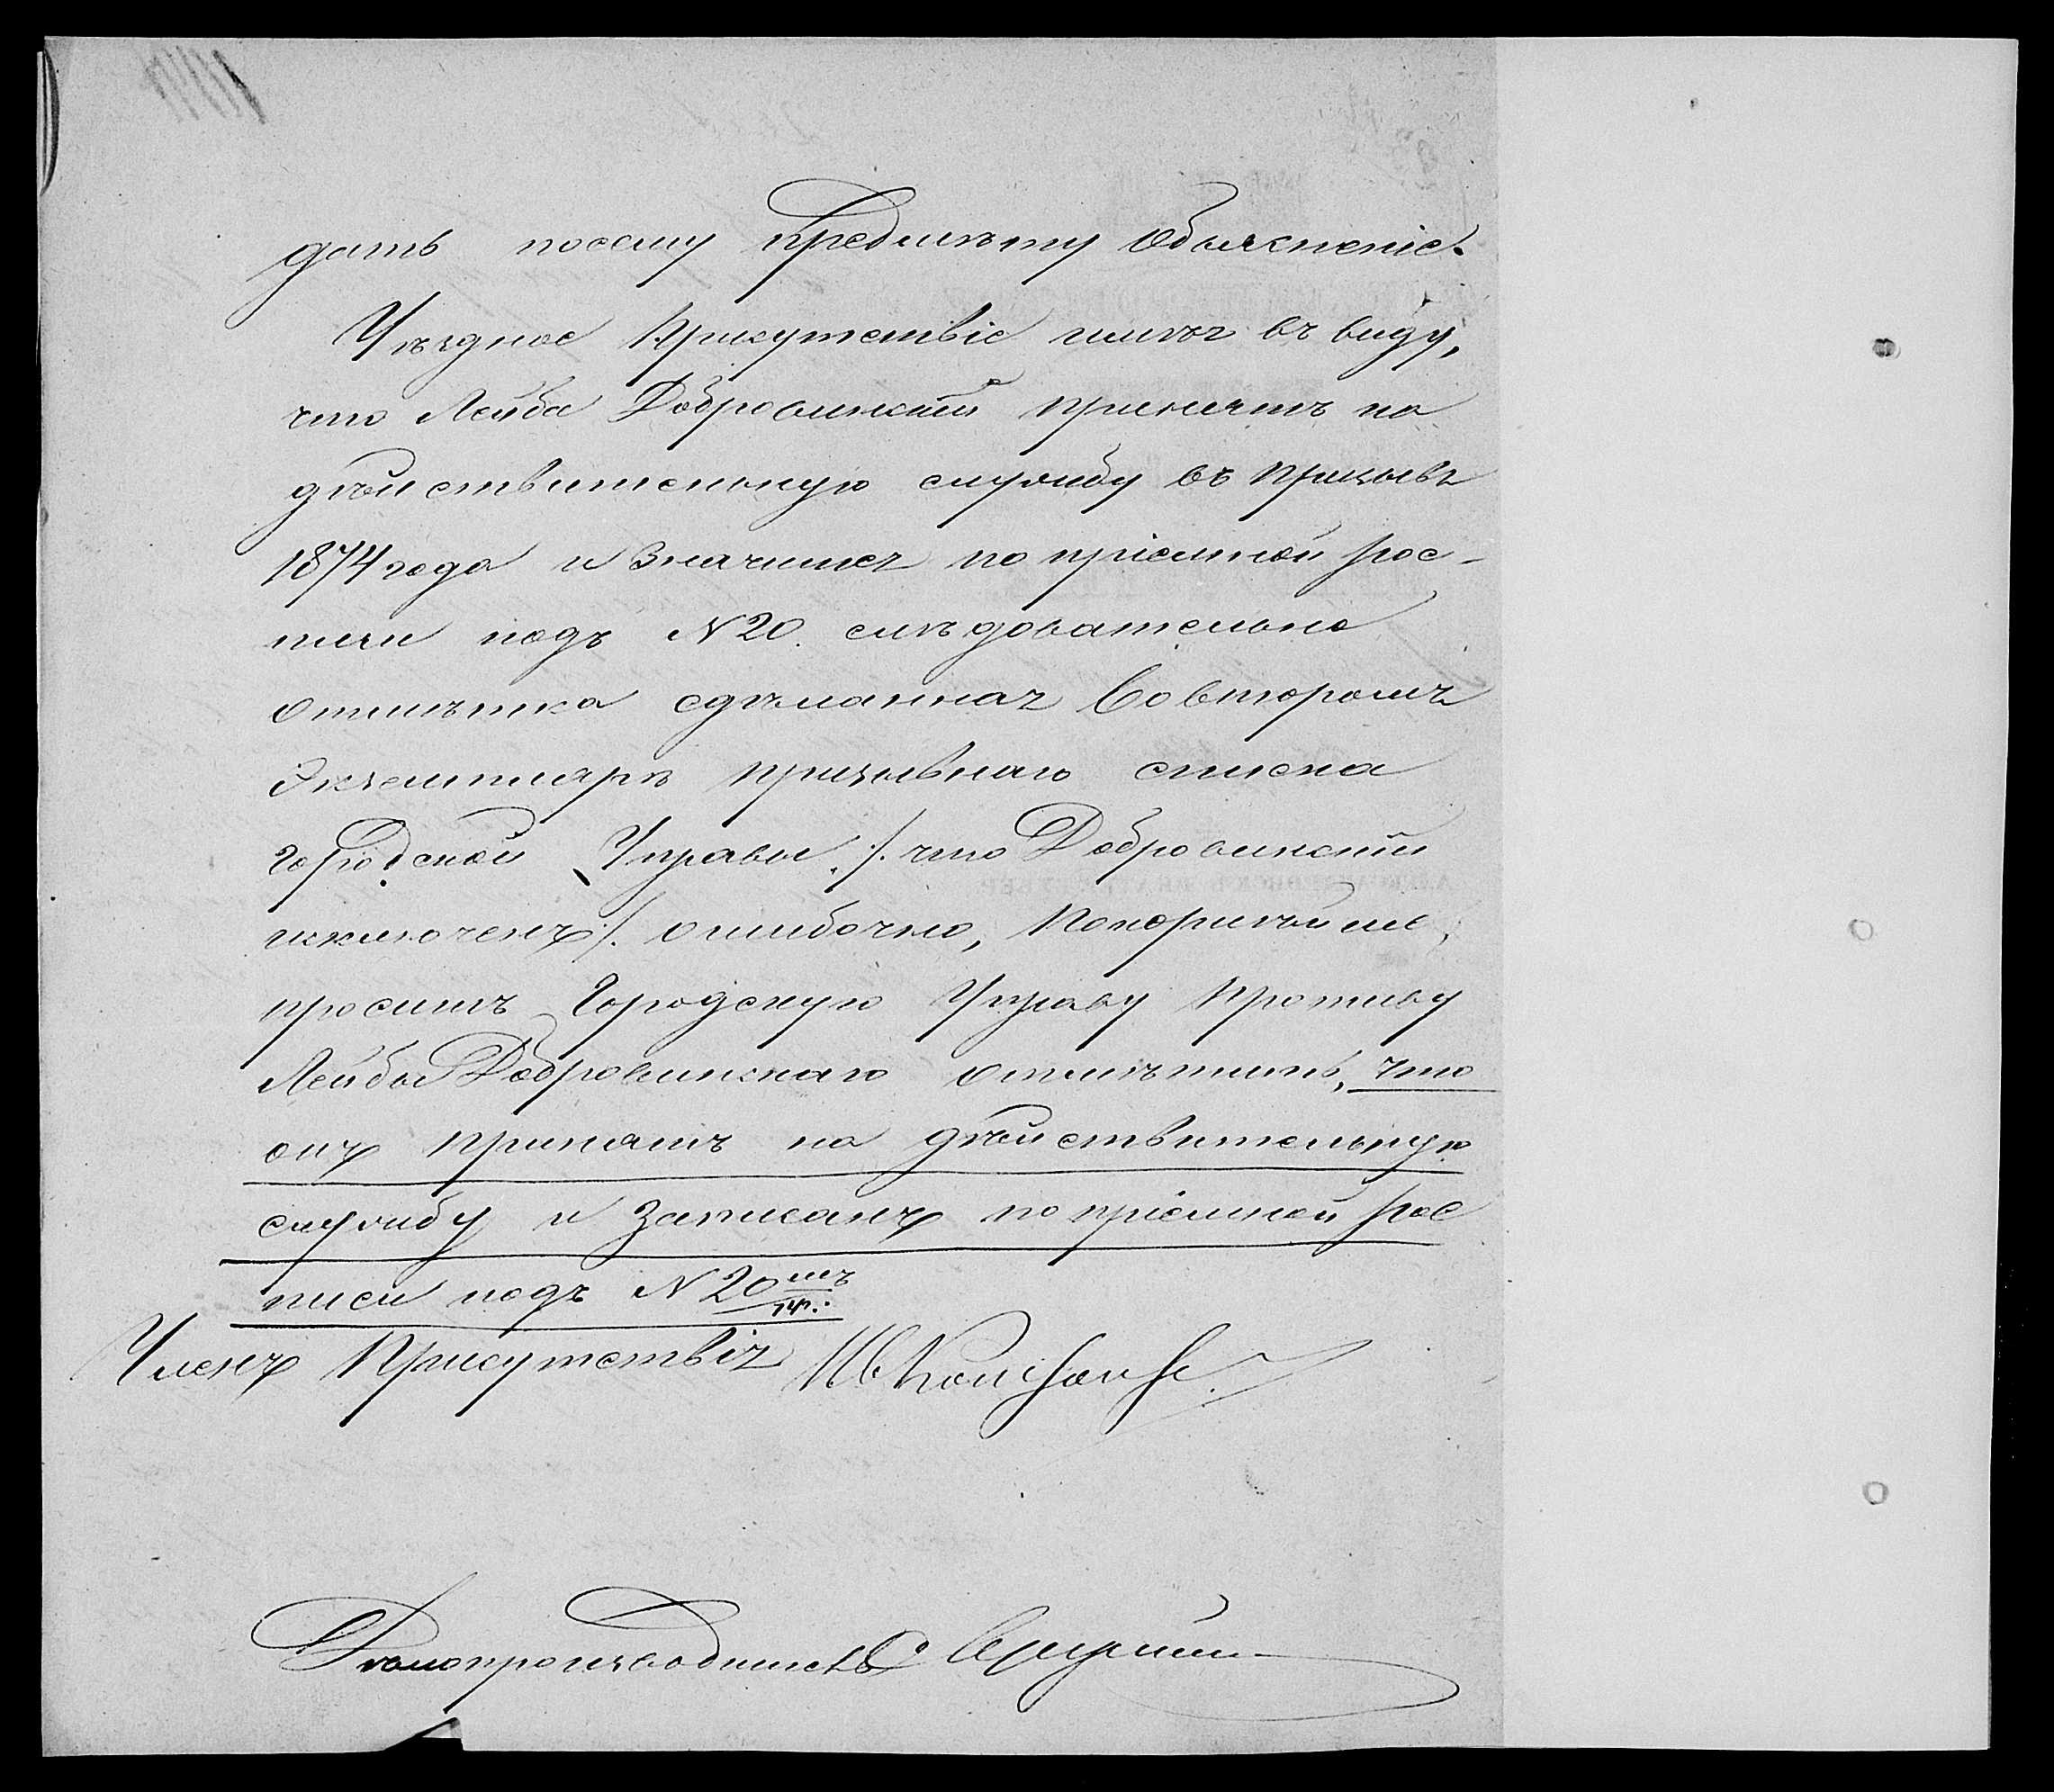 дать по сему предмѣту объясненіе.
Уѣздное Присутствіе имѣя въ виду,
что Лейба Добровинскій принятъ на
дѣйствительную службу въ призывъ
1874 года и значится по пріемной рос-
писи подъ N 20. слѣдовательно
отмѣтка сдѣланная во второмъ
экземплярѣ призывнаго списка
Городской Управы ./. что Добровинскій
исключенъ ./. ошибочно, покорнѣйше
проситъ Городскую Управу противу
Лейбы Добровинскаго отмѣтить, что
онъ принятъ на дѣйствительную
службу и записанъ по пріемной рос
писи подъ N 20мъ
Членъ Присутствія
Дѣлопроизводитель